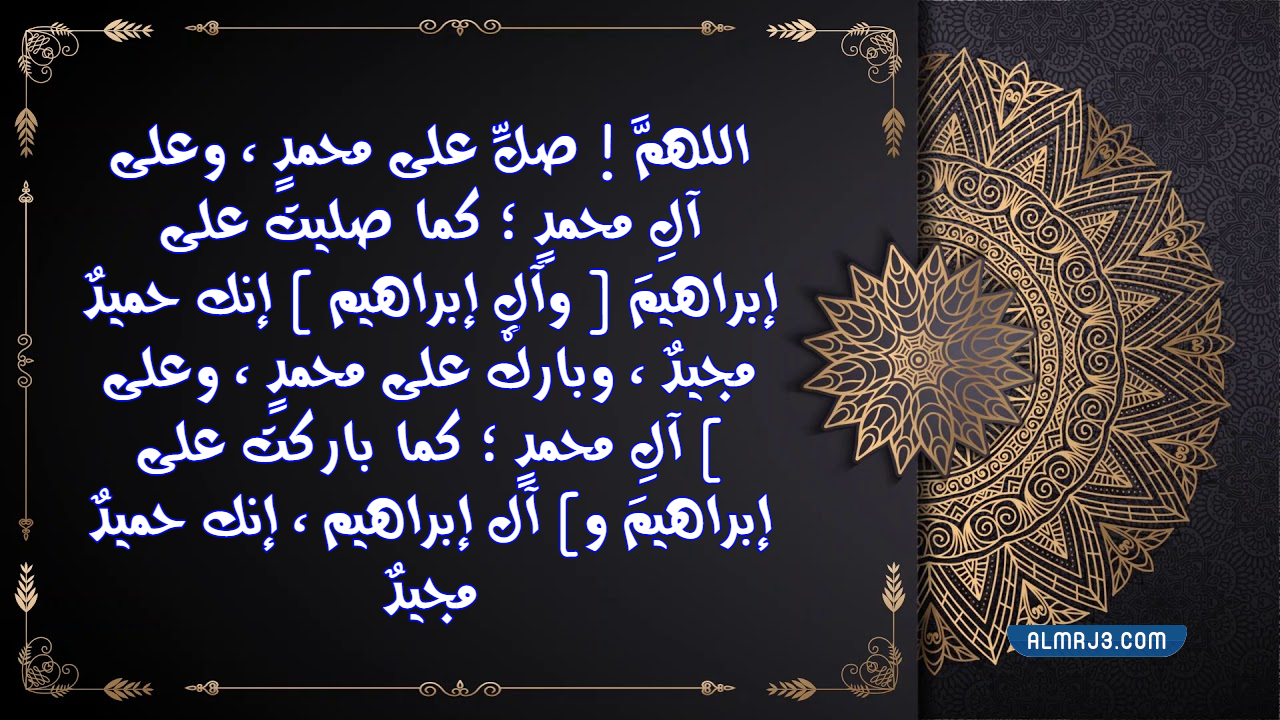 اللهمَّ ! صلِّ على محمدٍ ، وعلى
آلِ محمدٍ ؛ كما صليتَ على
إبراهيمَ [ وآلِ إبراهيم ] إنك حميدٌ
مجيدٌ ، وباركْ على محمدٍ ، وعلى
] آلِ محمدٍ ؛ كما باركتَ على
إبراهيمَ و] آل إبراهيم ، إنك حميدٌ
مجيدٌ
ALMRJ3.COM